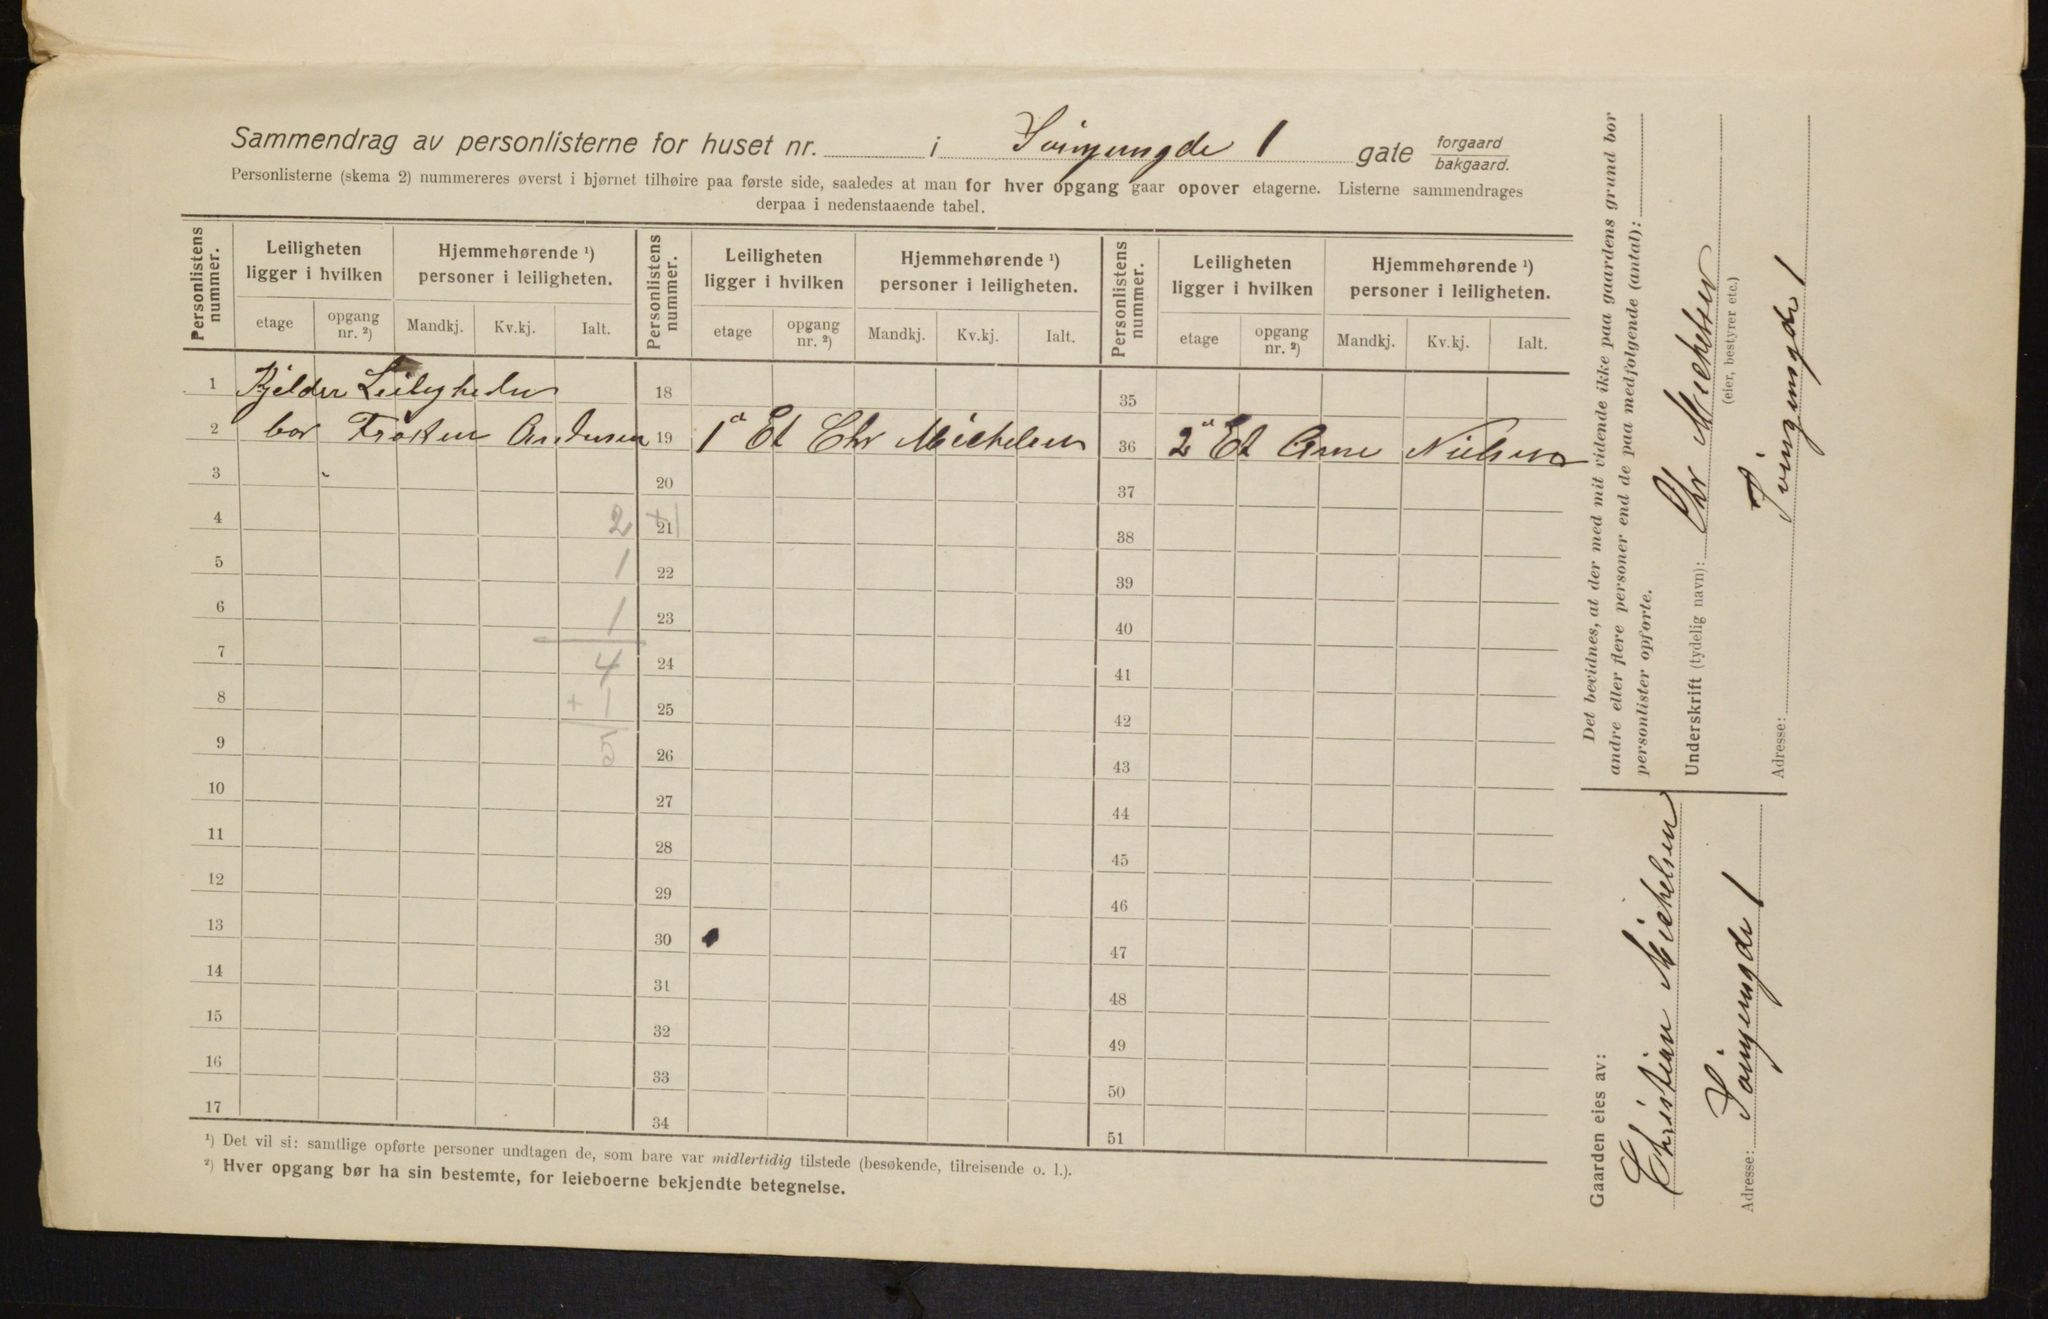 Sammendrag av personlisterne for huset nr. i Svingensgde 1 gate forgaard bakgaard.
Personlisterne (skema 2) nummereres øverst i hjørnet tilhøire paa første side, saaledes at man for hver opgang gaar opover etagerne. Listerne sammendrages
derpaa i nedenstaaende tabel.
Personlistens nummer. Leiligheten ligger i hvilken Hjemmehørende ¹) personer i leiligheten. Personlistens nummer. Leiligheten ligger i hvilken Hjemmehørende ¹) personer i leiligheten. Personlistens nummer. Leiligheten ligger i hvilken Hjemmehørende ¹) personer i leiligheten.
etage opgang nr. ²) Mandkj. Kv.kj. Ialt. etage opgang nr. ²) Mandkj. Kv.kj. Ialt. etage opgang nr. ²) Mandkj. Kv.kj. Ialt.
1 Kjelder Leiligheden 18 35
2 bor Frøken Andersen 19 1ª Et Chr Michelsen 36 2ª Et Arne Nielsen
3 20 37
4 2 +1 21 38
5 1 22 39
6 1 23 40
7 4 24 41
8 + 1 25 42
9 5 26 43
10 27 44
11 28 45
12 29 46
13 30 47
14 31 48
15 32 49
16 33 50
17 34 51
¹) Det vil si: samtlige opførte personer undtagen de, som bare var midlertidig tilstede (besøkende, tilreisende o. l.).
²) Hver opgang bør ha sin bestemte, for leieboerne bekjendte betegnelse.
Det bevidnes, at der med mit vidende ikke paa gaardens grund bor
andre eller flere personer end de paa medfolgende (antal):
personlister opforte.
Underskrift (tydelig navn): Chr Michelsen
(eier, bestyrer etc.)
Adresse: Svingensgde 1
Gaarden eies av:
Christian Michelsen
Adresse: Svingensgde 1